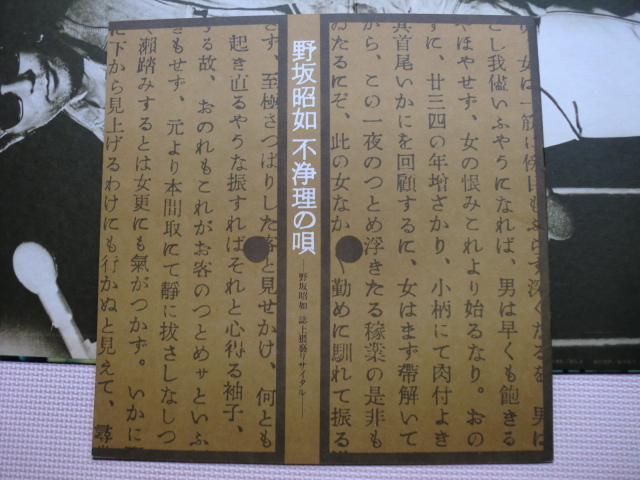 り、女は一筋に
とし我儘いふやうになれば、男は早くも飽きる
やはやせず、女の恨みこれより始るなり。おの
すに、廿三四の年増ざかり、小柄にて肉付よき
其首尾いかにを回顧するに、女はまづ帶解いて
から、この一夜のつとめ浮きたる稼業の是非も
ゐたるにぞ、此の女なか〱勤めに馴れて振る
野坂昭如 不浄理の唄
―野坂昭如 誌上猥褻リサイタル―
さず、至極さつぱりした客と見せかけ、何とも
起き直るやうな振すればそれと心得る袖子、
る故、おのれもこれがお客のつとめサといふ
きもせず、元より本間取にて靜に抜さしなしつ
瀬踏みするとは女更にも氣がつかず。いかに
に下から見上げるわけにも行かぬと見えて、尋